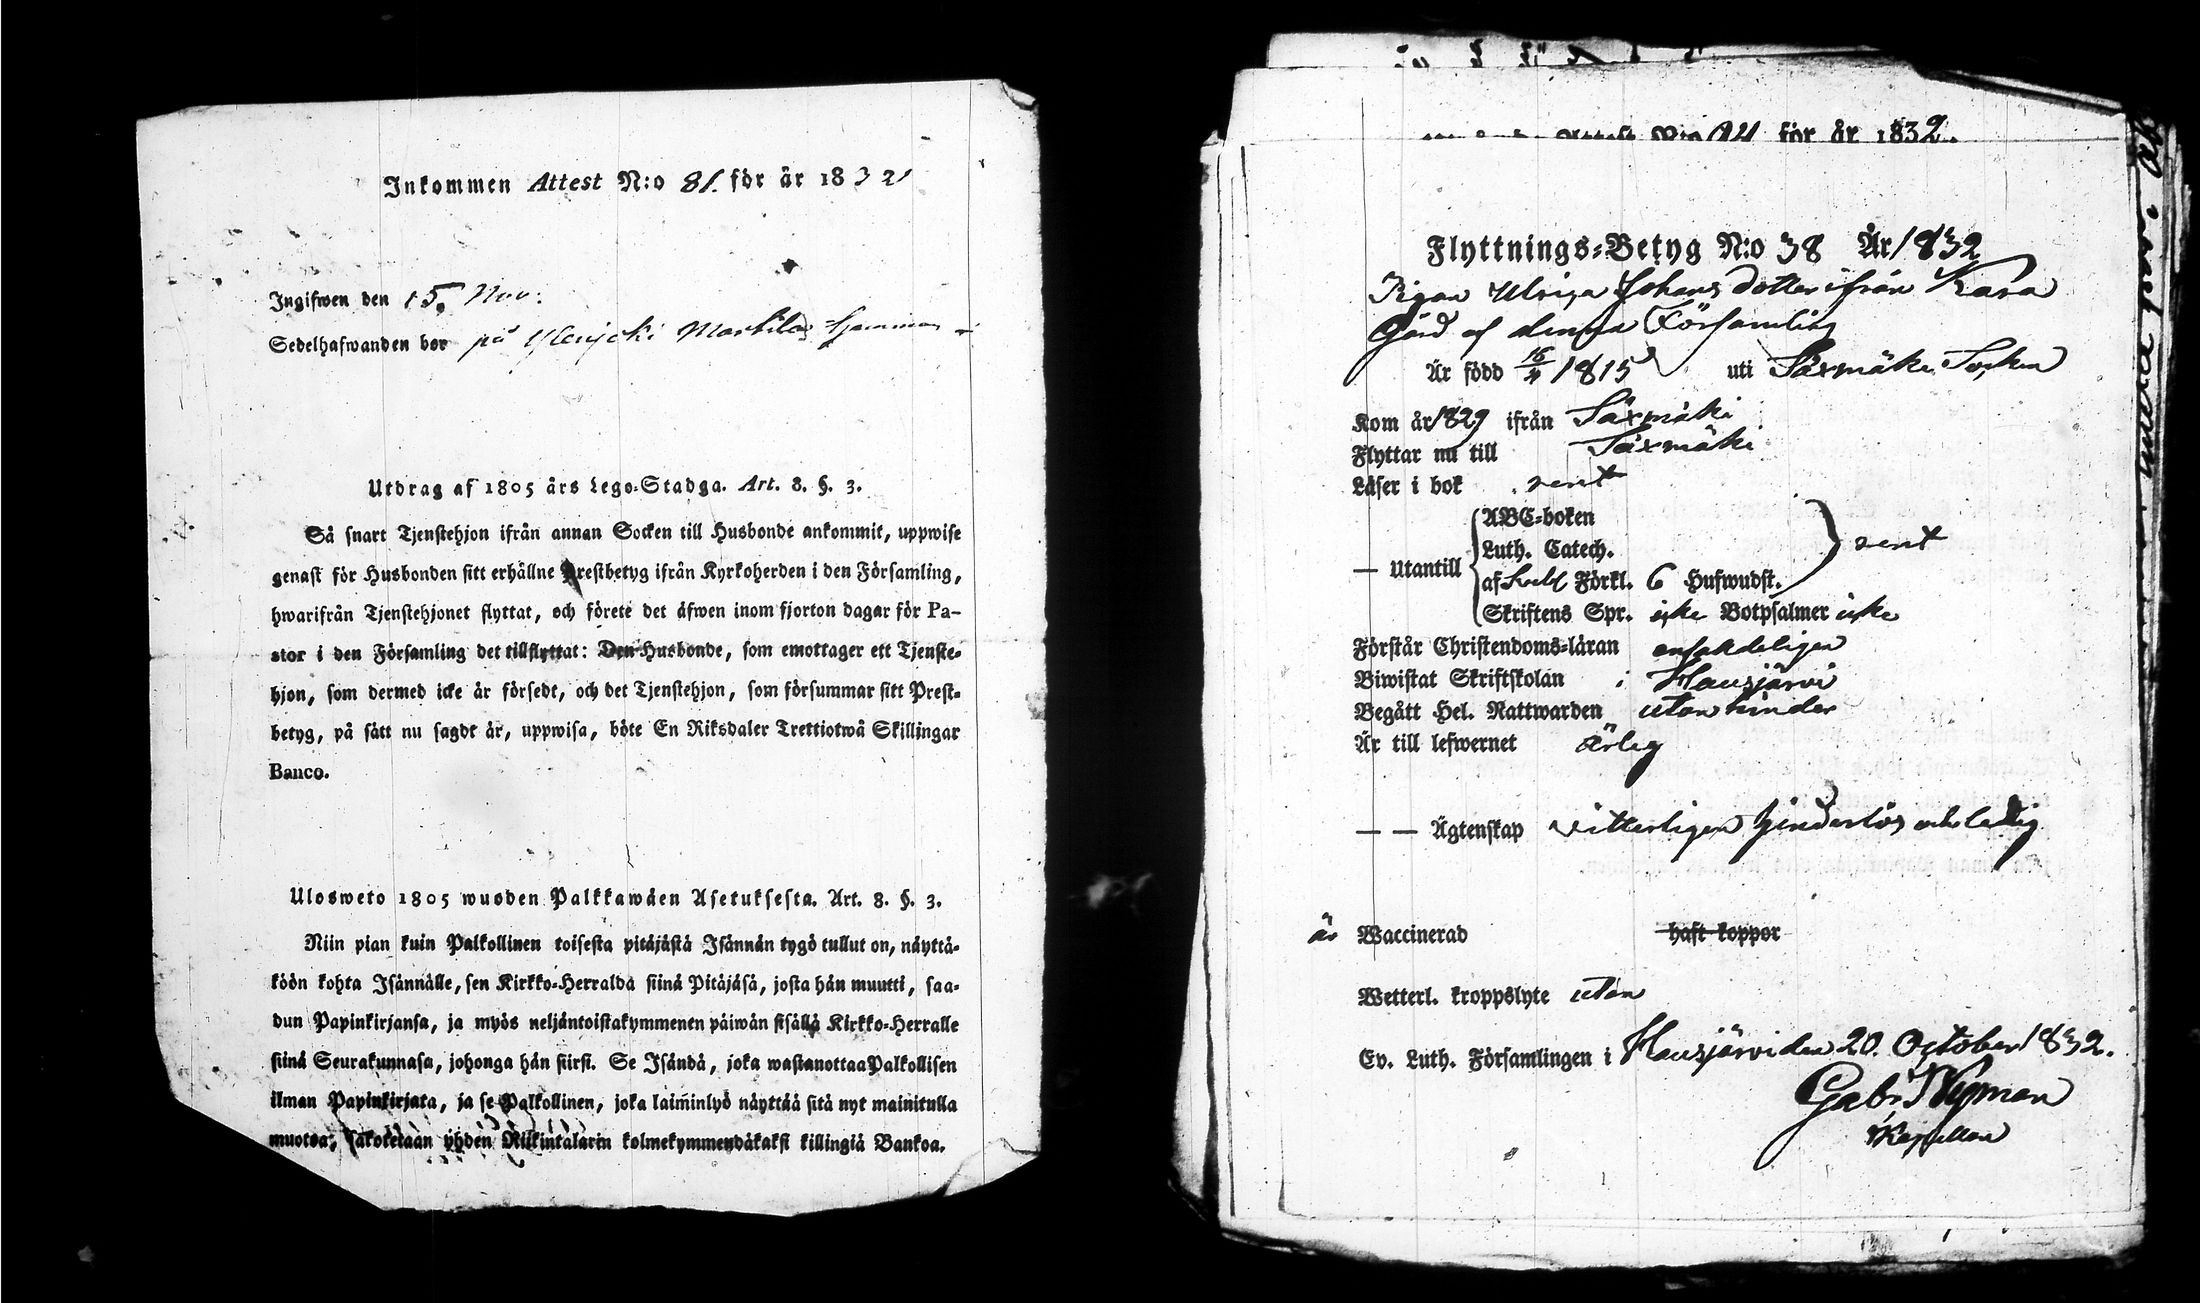 Inkommen Attest N:o 81. för år 1832
Ingifwen den 15. Nov:
Sedelhafwanden bor på Ylenjoki Marttila
Utdrag af 1805 års Lego-Stadga. Art. 8. §. 3.
Så snart Tjenstehjon ifrån annan Socken till Husbonde ankommit, uppwise
genast för Husbonden sitt erhållne Prestbetyg ifrån Kyrkoherden i den Församling,
hwarifrån Tjenstehjonet flyttat, och förete det äfwen inom fjorton dagar för Pa-
stor i den Församling det tillflyttat: Den Husbonde, som emottager ett Tjenste-
hjon, som dermed icke är försedt, och det Tjenstehjon, som försummar sitt Prest-
betyg, på sätt nu sagdt är, uppwisa, böte En Riksdaler Trettiotwå Skillingar
Banco.
Ulosweto 1805 wuoden Palkkawäen Asetuksesta. Art. 8. §. 3.
Niin pian kuin Palkollinen toisesta pitäjästä Isännän tygö tullut on, näyttä-
köön kohta Isännälle, sen Kirkko-Herralda siinä Pitäjäsä, josta hän muutti, saa-
dun Papinkirjansa, ja myös neljäntoistakymmenen päiwän sisällä Kirkko-Herralle
siinä Seurakunnasa, johonga hän siirsi. Se Isändä, joka wastanottaa Palkollisen
ilman Papinkirjata, ja se Palkollinen, joka laiminlyö näyttää sitä nyt mainitulla
muotoa, sakotetaan yhden Riikintalarin kolmekymmendäkaksi killingiä Bankoa.
Attest N:o för år 1832.
Flyttnings-Betyg N:o 38 År 1832
Pigan Ulrica Johans dotter ifrån Kara
Gård af denna Församling
Är född 1815 uti Säxmäki Socken
Kom år 1829 ifrån Säxmäki
Flyttar nu till Säxmäki
Läser i bok rent
— Utantill ABC-boken
Luth. Catech. rent
af Sveb. Förkl. 6 Hufwudst.
Skriftens Spr. icke Botpsalmer icke
Förstår Christendoms-läran enfaldeligen
Biwistat Skriftskolan i Hausjärvi
Begått Hel. Nattwarden utan hinder
Är till lefwernet ärlig
— — Ägtenskap vitterligen hinderlös och ledig
är Waccinerad haft koppor
Wetterl. kroppslyte utan
Ev. Luth. Församlingen i Hausjärvi den 20. October 1832.
Gabr. Nyman
Kapellan